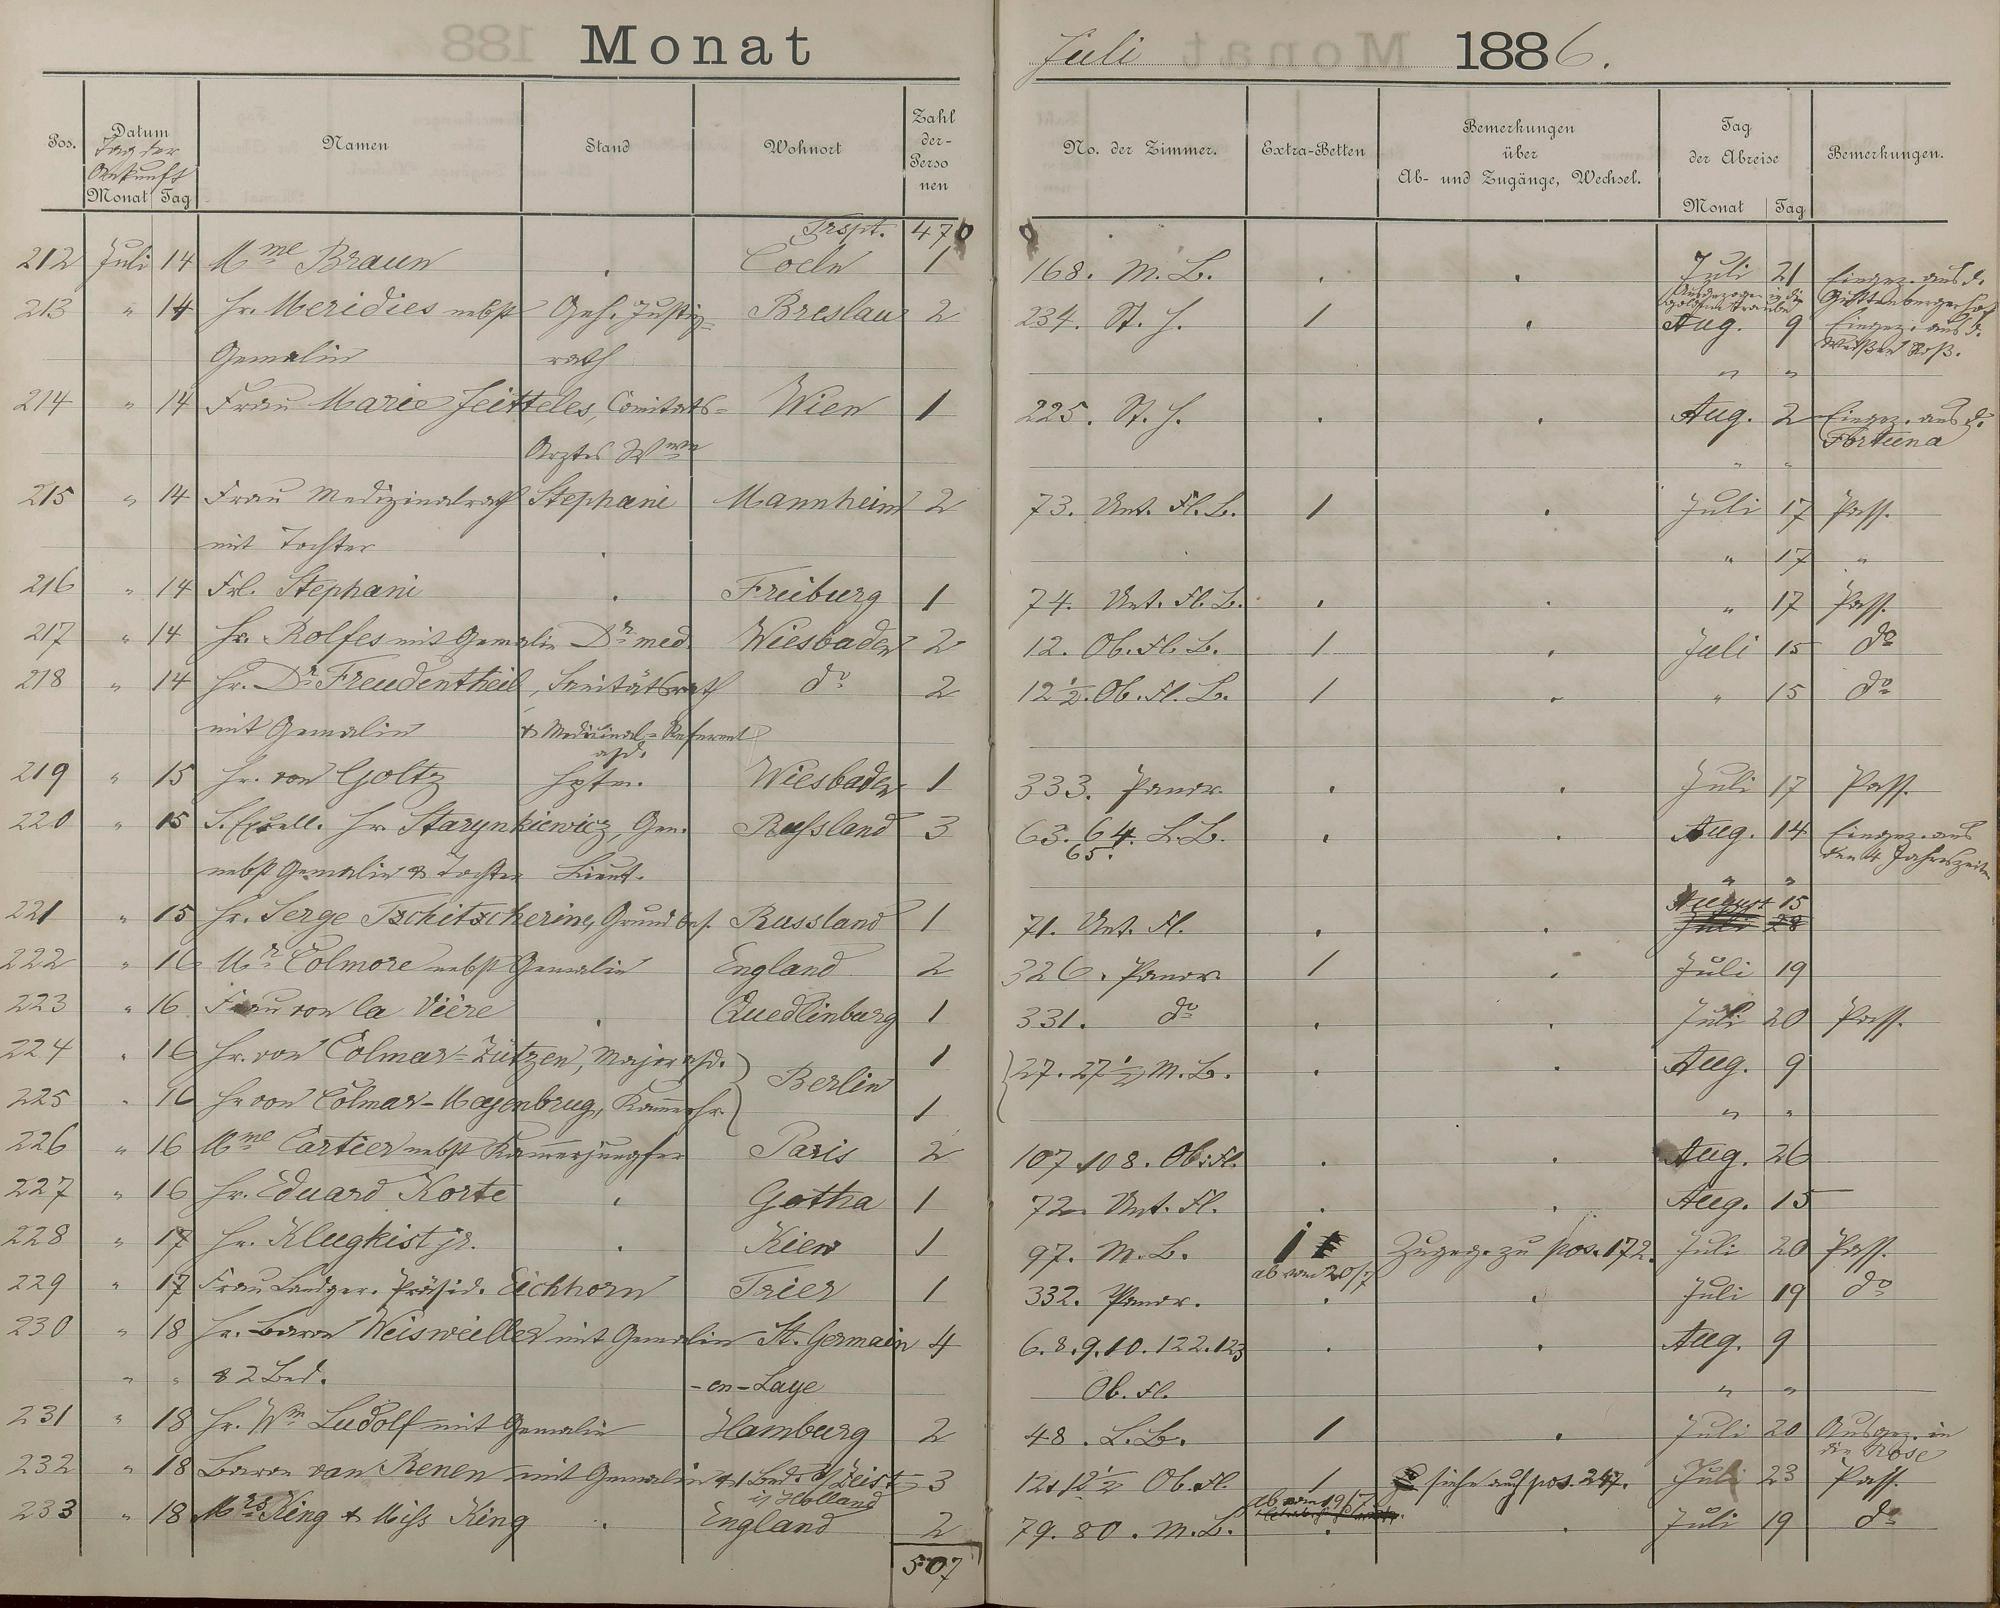 Monat
Juli 1886.
Pos. Datum Namen Stand Wohnort Zahl der Personen No. der Zimmer. Extra-Betten Bemerkungen über Ab- und Zugänge, Wechsel. Tag der Abreise Bemerkungen.
Tag der Ankunft
Monat Tag Monat Tag
Trspt. 470
212 Juli 14 Mme Braun Coeln 1 168. M. B. Juli 21 Eingez. aus d.
Guttenbergerhof
213 " 14 Hr. Meridies nebst Geh. Justiz- Breslau 2 234. St. H. 1 Aug. 9 Eingez. aus d.
Gemalin rath " " weißen Roß.
214 " 14 Frau Marie Jeitteles, Comitats- Wien 1 225. St. H. Aug. 2 Eingez. aus d.
Arztes Wwe " " Fortuna
215 " 14 Frau Medizinalrath Stephani Mannheim 2 73. Unt. Fl. B. 1 Juli 17 Pass.
mit Tochter " 17 "
216 " 14 Frl. Stephani Freiburg 1 74. Unt. Fl. B. " 17 Pass.
217 " 14 Hr. Rolfes mit Gemalin Dr. med. Wiesbaden 2 12. Ob. Fl. B. 1 Juli 15 do
218 " 14 Hr. Dr. Freudentheil, Sanitätsrath do 2 12 1/2. Ob. Fl. B. 1 " 15 do
mit Gemalin & Medicinal-Referent
219 " 15 Hr. von Goltz Hptm. a/D. Wiesbaden 1 333. Panor. Juli 17 Pass.
220 " 15 S. Excell. Hr. Starynkiewicz, Gen. Russland 3 63. 64. L. B. Aug. 14 Eingez. aus
nebst Gemalin & Tochter Lieut. 65. " " den 4 Jahreszeiten
221 " 15 Hr. Serge Tschitscherine, Grundbes. Russland 1 71. Unt. Fl. August 15
Juli 28
222 " 16 Mr Colmore nebst Gemalin England 2 326. Panor. 1 Juli 19
223 " 16 Frau von la Vière Quedlinburg 1 331. do Juli 20 Pass.
224 " 16 Hr. von Colmar-Zützen, Major a/D. Berlin 1 27. 27 1/2 M. B. Aug. 9
225 " 16 Hr von Colmar-Meyenbrug, Kammerhr. 1 " "
226 " 16 Mme Cartier nebst Kammerjungfer Paris 2 107. 108. Ob. Fl. Aug. 26
227 " 16 Hr. Eduard Korte Gotha 1 72. Unt. Fl. Aug. 15
228 " 17 Hr. Klugkist jr. Kiew 1 97. M. B. 1 Zugeg. zu pos. 172. Juli 20 Pass.
ab vom 20/7
229 " 17 Frau Landger. Präsid. Eichhorn Trier 1 332. Panor. Juli 19 do
230 " 18 Hr. Baron Weisweiller mit Gemalin St. Germain 4 6. 8. 9. 10. 122. 123 Aug. 9
" " & 2 Bed. -en-Laye Ob. Fl. " "
231 " 18 Hr. Wm Ludolf mit Gemalin Hamburg 2 48. L. B. 1 Juli 20 Ausgez. in
die Rose
232 " 18 Baron van Renen mit Gemalin & 1 Bed. Zeist 3 12. 12 1/2 Ob. Fl. 1 siehe auch pos. 247. Juli 23 Pass.
in Holland ab vom 19/7
233 " 18 Mrs King & Miss King England 2 79. 80. M. B. Juli 19 do
507